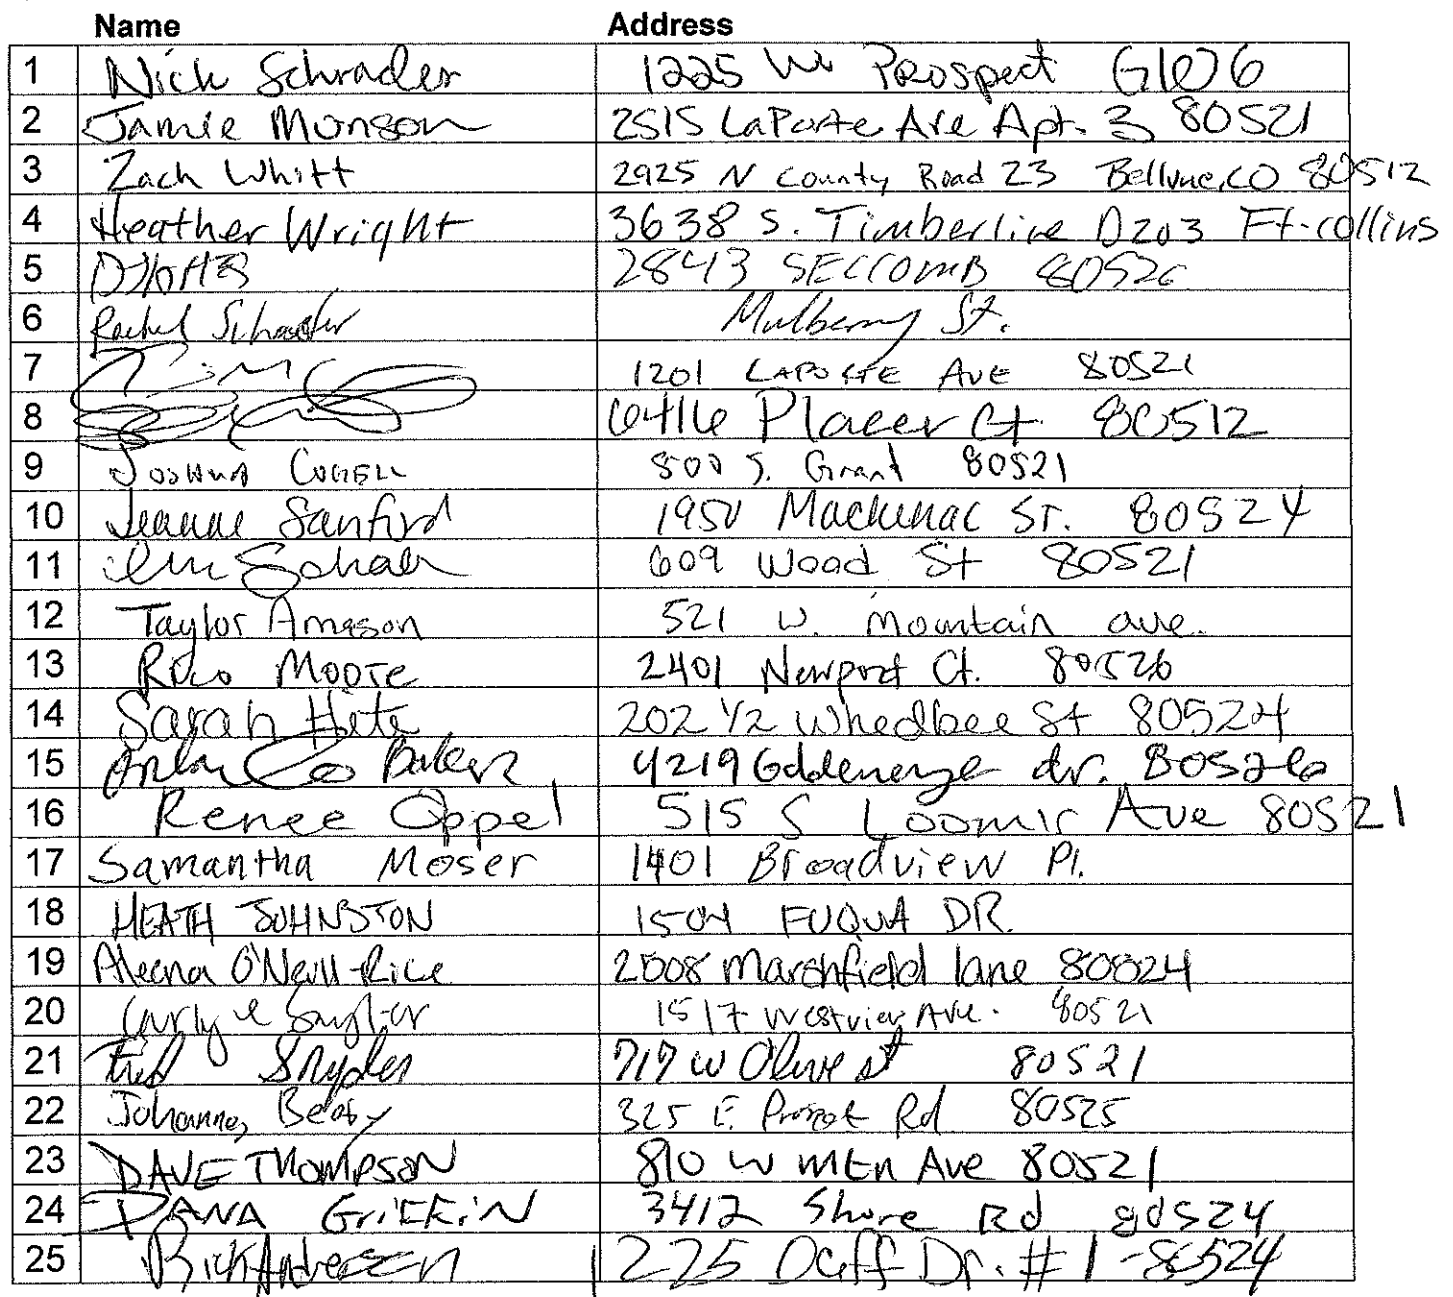 Name Address
1 Nick Schrader 1225 W Prospect G106
2 Jamie Munson 2515 LaPorte Ave Apt. 3 80521
3 Zach Whitt 2925 N County Road 23 Bellvue, CO 80512
4 Heather Wright 3638 S. Timberline D203 Ft. collins
5 2843 SECCOMB 80526
6 Rachel Schrader Mulberry St.
7 1201 LAPORTE AVE 80521
8 6416 Placer Ct 80512
9 JOSHUA 500 S. Grant 80521
10 Jeanne Sanford 1950 Mackinac ST. 80524
11 609 Wood St 80521
12 Taylor Arneson 521 W. Mountain ave.
13 Rico Moore 2401 Newport Ct. 80526
14 Sarah Hite 202 1/2 Whedbee St 80524
15 4219 Goldeneye dr. 80526
16 Renee Oppel 515 S Loomis Ave 80521
17 Samantha Moser 1401 Broadview Pl.
18 HEATH JOHNSTON 1504 FUQUA DR.
19 Aleena O'Neill-Rice 2008 Marshfield lane 80524
20 1517 Westview Ave. 80521
21 Fred Snyder 717 W Olive st 80521
22 Johannes Beaty 325 E. Rd 80525
23 DAVE THOMPSON 810 W Mtn Ave 80521
24 DANA GriFFiN 3412 Shore Rd 80524
25 Rick Andersen 1225 Duff Dr. #1 80524